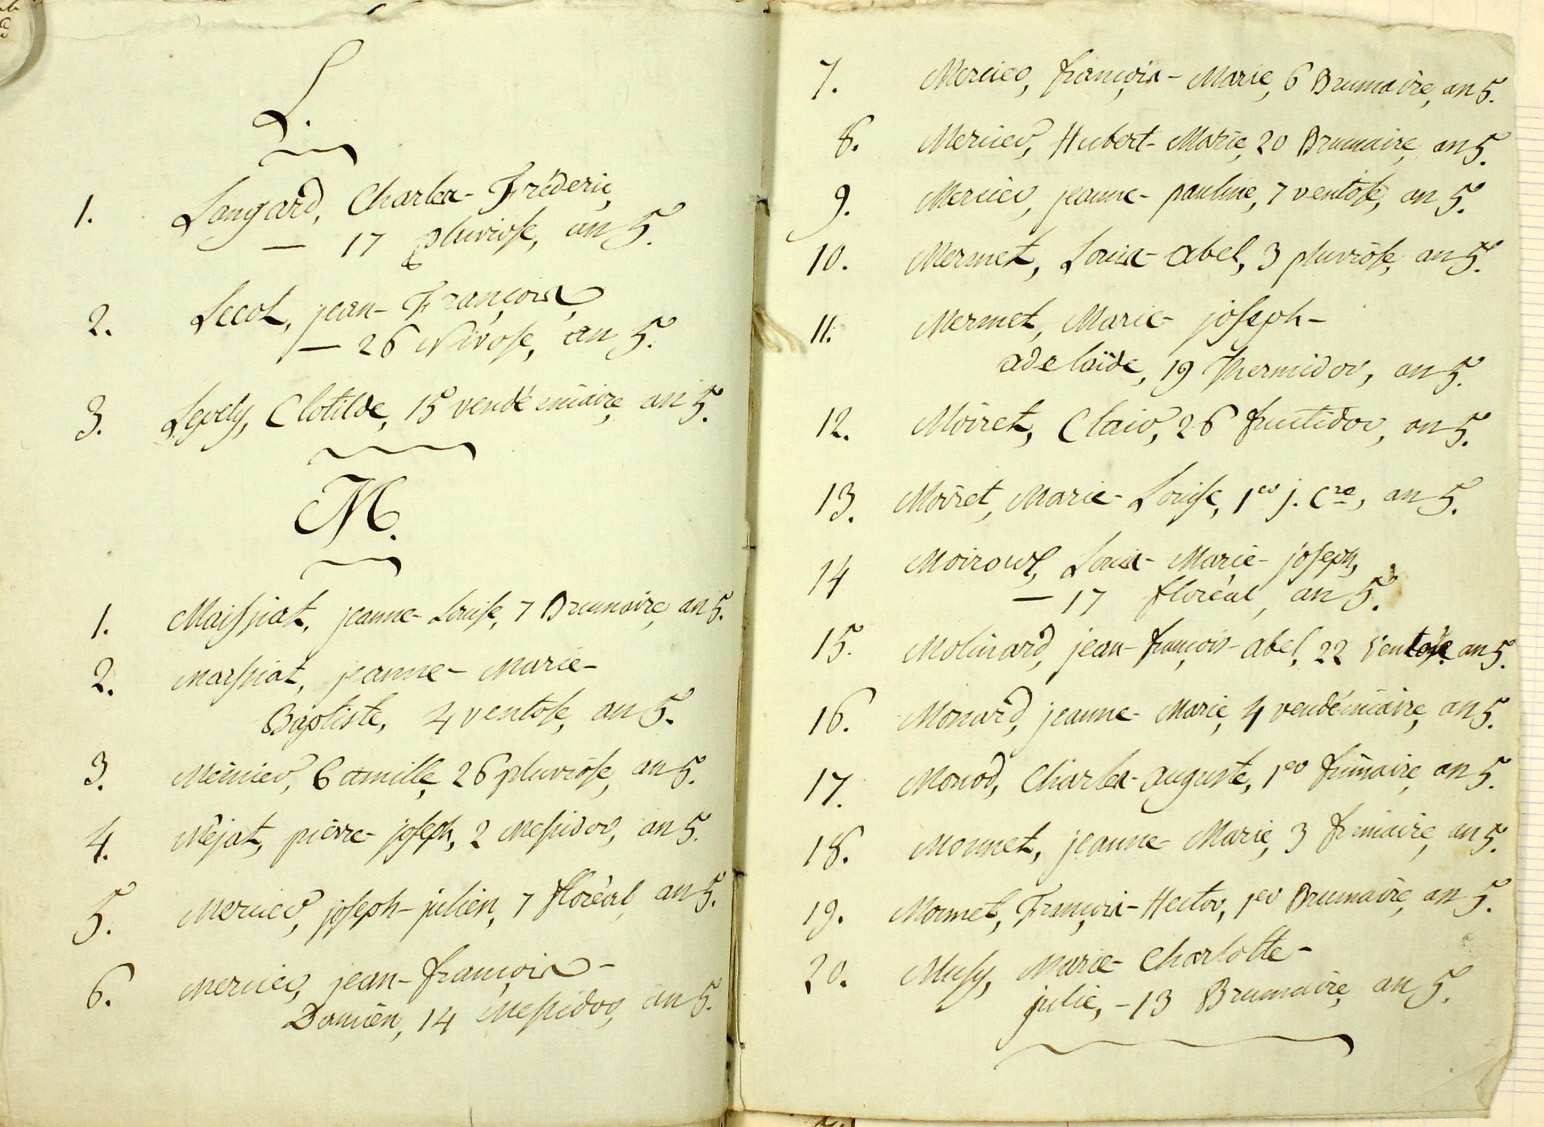 L.
1. Langard, Charles-Fréderic,
— 17 pluviose, an 5.
2. Lecol, jean-François,
— 26 Nivose, an 5.
3. Clotilde, 15 vendémiaire, an 5.
M.
1. Maissiat, jeanne-Louise, 7 Brumaire, an 5.
2. Maissiat, jeanne-Marie-
Baptiste, 4 ventose, an 5.
3. Mêmier, Camille, 26 pluviôse, an 5.
4. Méjat, pierre-joseph, 2 Messidor, an 5.
5. Mercier, joseph-julien, 7 floréal, an 5.
6. Mercier, jean-françois-
Damien, 14 Messidor, an 5.
7. Mercier, françois-Marie, 6 Brumaire, an 5.
8. Mercier, Hubert-Marie, 20 Brumaire, an 5.
9. Mercier, jeanne-pauline, 7 ventose, an 5.
10. Mermet, Louis-abel, 3 pluviôse, an 5.
11. Mermet, Marie-joseph-
adelaïde, 19 thermidor, an 5.
12. Moiret, Clair, 26 fructidor, an 5.
13. Moiret, Marie-Louise, 1er j. Cre, an 5.
14 Moiroux, Louis-Marie-joseph,
— 17 floréal, an 5.
15. Molinard, jean-françois-abel, 22 Ventose an 5.
16. Monard, jeanne-Marie, 4 vendémiaire, an 5.
17. Monod, Charles-auguste, 1er frimaire, an 5.
18. Monnet, jeanne-Marie, 3 frimaire, an 5.
19. Monnet, François-Hector, 1er Brumaire, an 5.
20. Musy, Marie-Charlotte-
julie, -13 Brumaire, an 5.